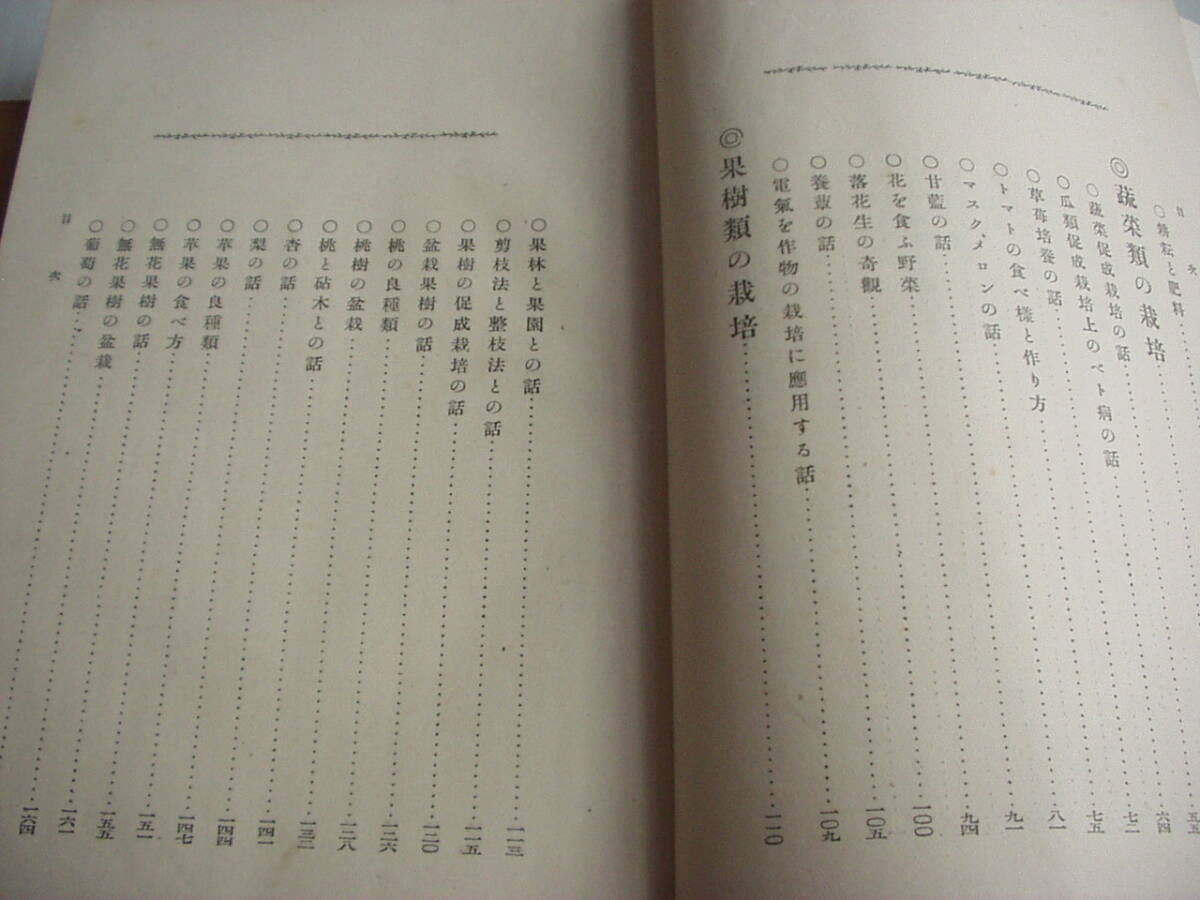 目次
○耕耘と肥料
◎蔬菜類の栽培
○蔬菜促成栽培の話 五五
○瓜類促成栽培上のベト病の話 六四
○草莓培養の話 七二
○トマトの食べ様と作り方 七五
○マスク、メロンの話 八一
○甘藍の話 九一
○花を食ふ野菜 九四
○落花生の奇觀 一〇〇
○養の話 一〇五
○電氣を作物の栽培に應用する話 一〇九
◎果樹類の栽培 一一〇
○果林と果園との話 一一三
○剪枝法と整枝法との話 一一五
○果樹の促成栽培の話 一二〇
○盆栽果樹の話 一二六
○桃の良種類 一二八
○桃樹の盆栽 一三三
○桃と砧木との話 一四一
○杏の話 一四四
○梨の話 一四七
○苹果の良種類 一五一
○苹果の食べ方 一五五
○無花果樹の話 一六一
○無花果樹の盆栽 一六四
○葡萄の話
目次